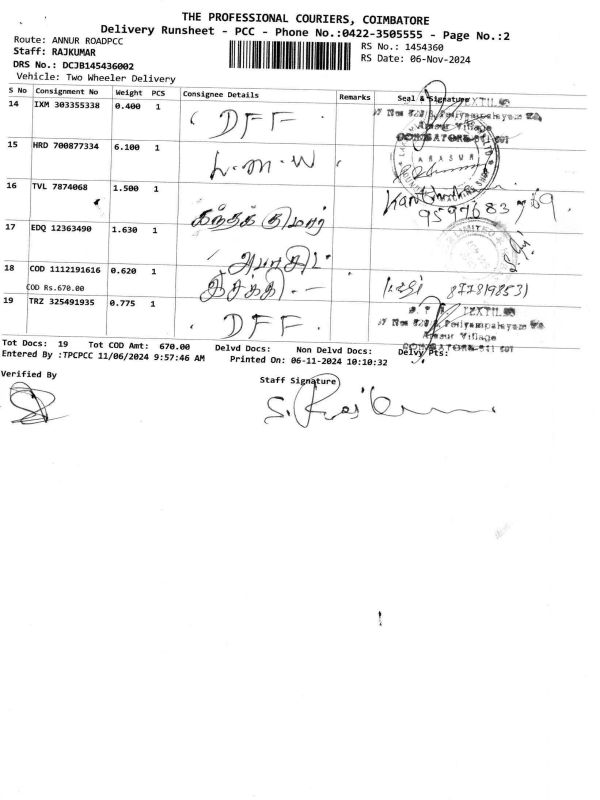 THE PROFESSIONAL COURIERS, COIMBATORE
Delivery Runsheet - PCC - Phone No.:0422-3505555 - Page No.:2
Route: ANNUR ROADPCC
RS No.: 1454360
Staff: RAJKUMAR
RS Date: 06-Nov-2024
DRS No.: DCJB145436002
Vehicle: Two Wheeler Delivery
S No Consignment No Weight PCS Consignee Details Remarks Seal & Signature
14 IXM 303355338 0.400 1 DFF
TEXTILE
Arasur Village
COIMBATORE-641 407
15 HRD 700877334 6.100 1 L.M.W
ARASUR
16 TVL 7874068 1.500 1 கந்தக்குமார்
17 EDQ 12363490 1.630 1
LIMITED
18 COD 1112191616 0.620 1 8778198531
COD Rs.670.00
19 TRZ 325491935 0.775 1 DFF
TEXTILE
Arasur Village
COIMBATORE-641 407
Tot Docs: 19 Tot COD Amt: 670.00 Delvd Docs: Non Delvd Docs: Delvy Pts:
Entered By :TPCPCC 11/06/2024 9:57:46 AM Printed On: 06-11-2024 10:10:32
Verified By
Staff Signature
S. Rajkumar